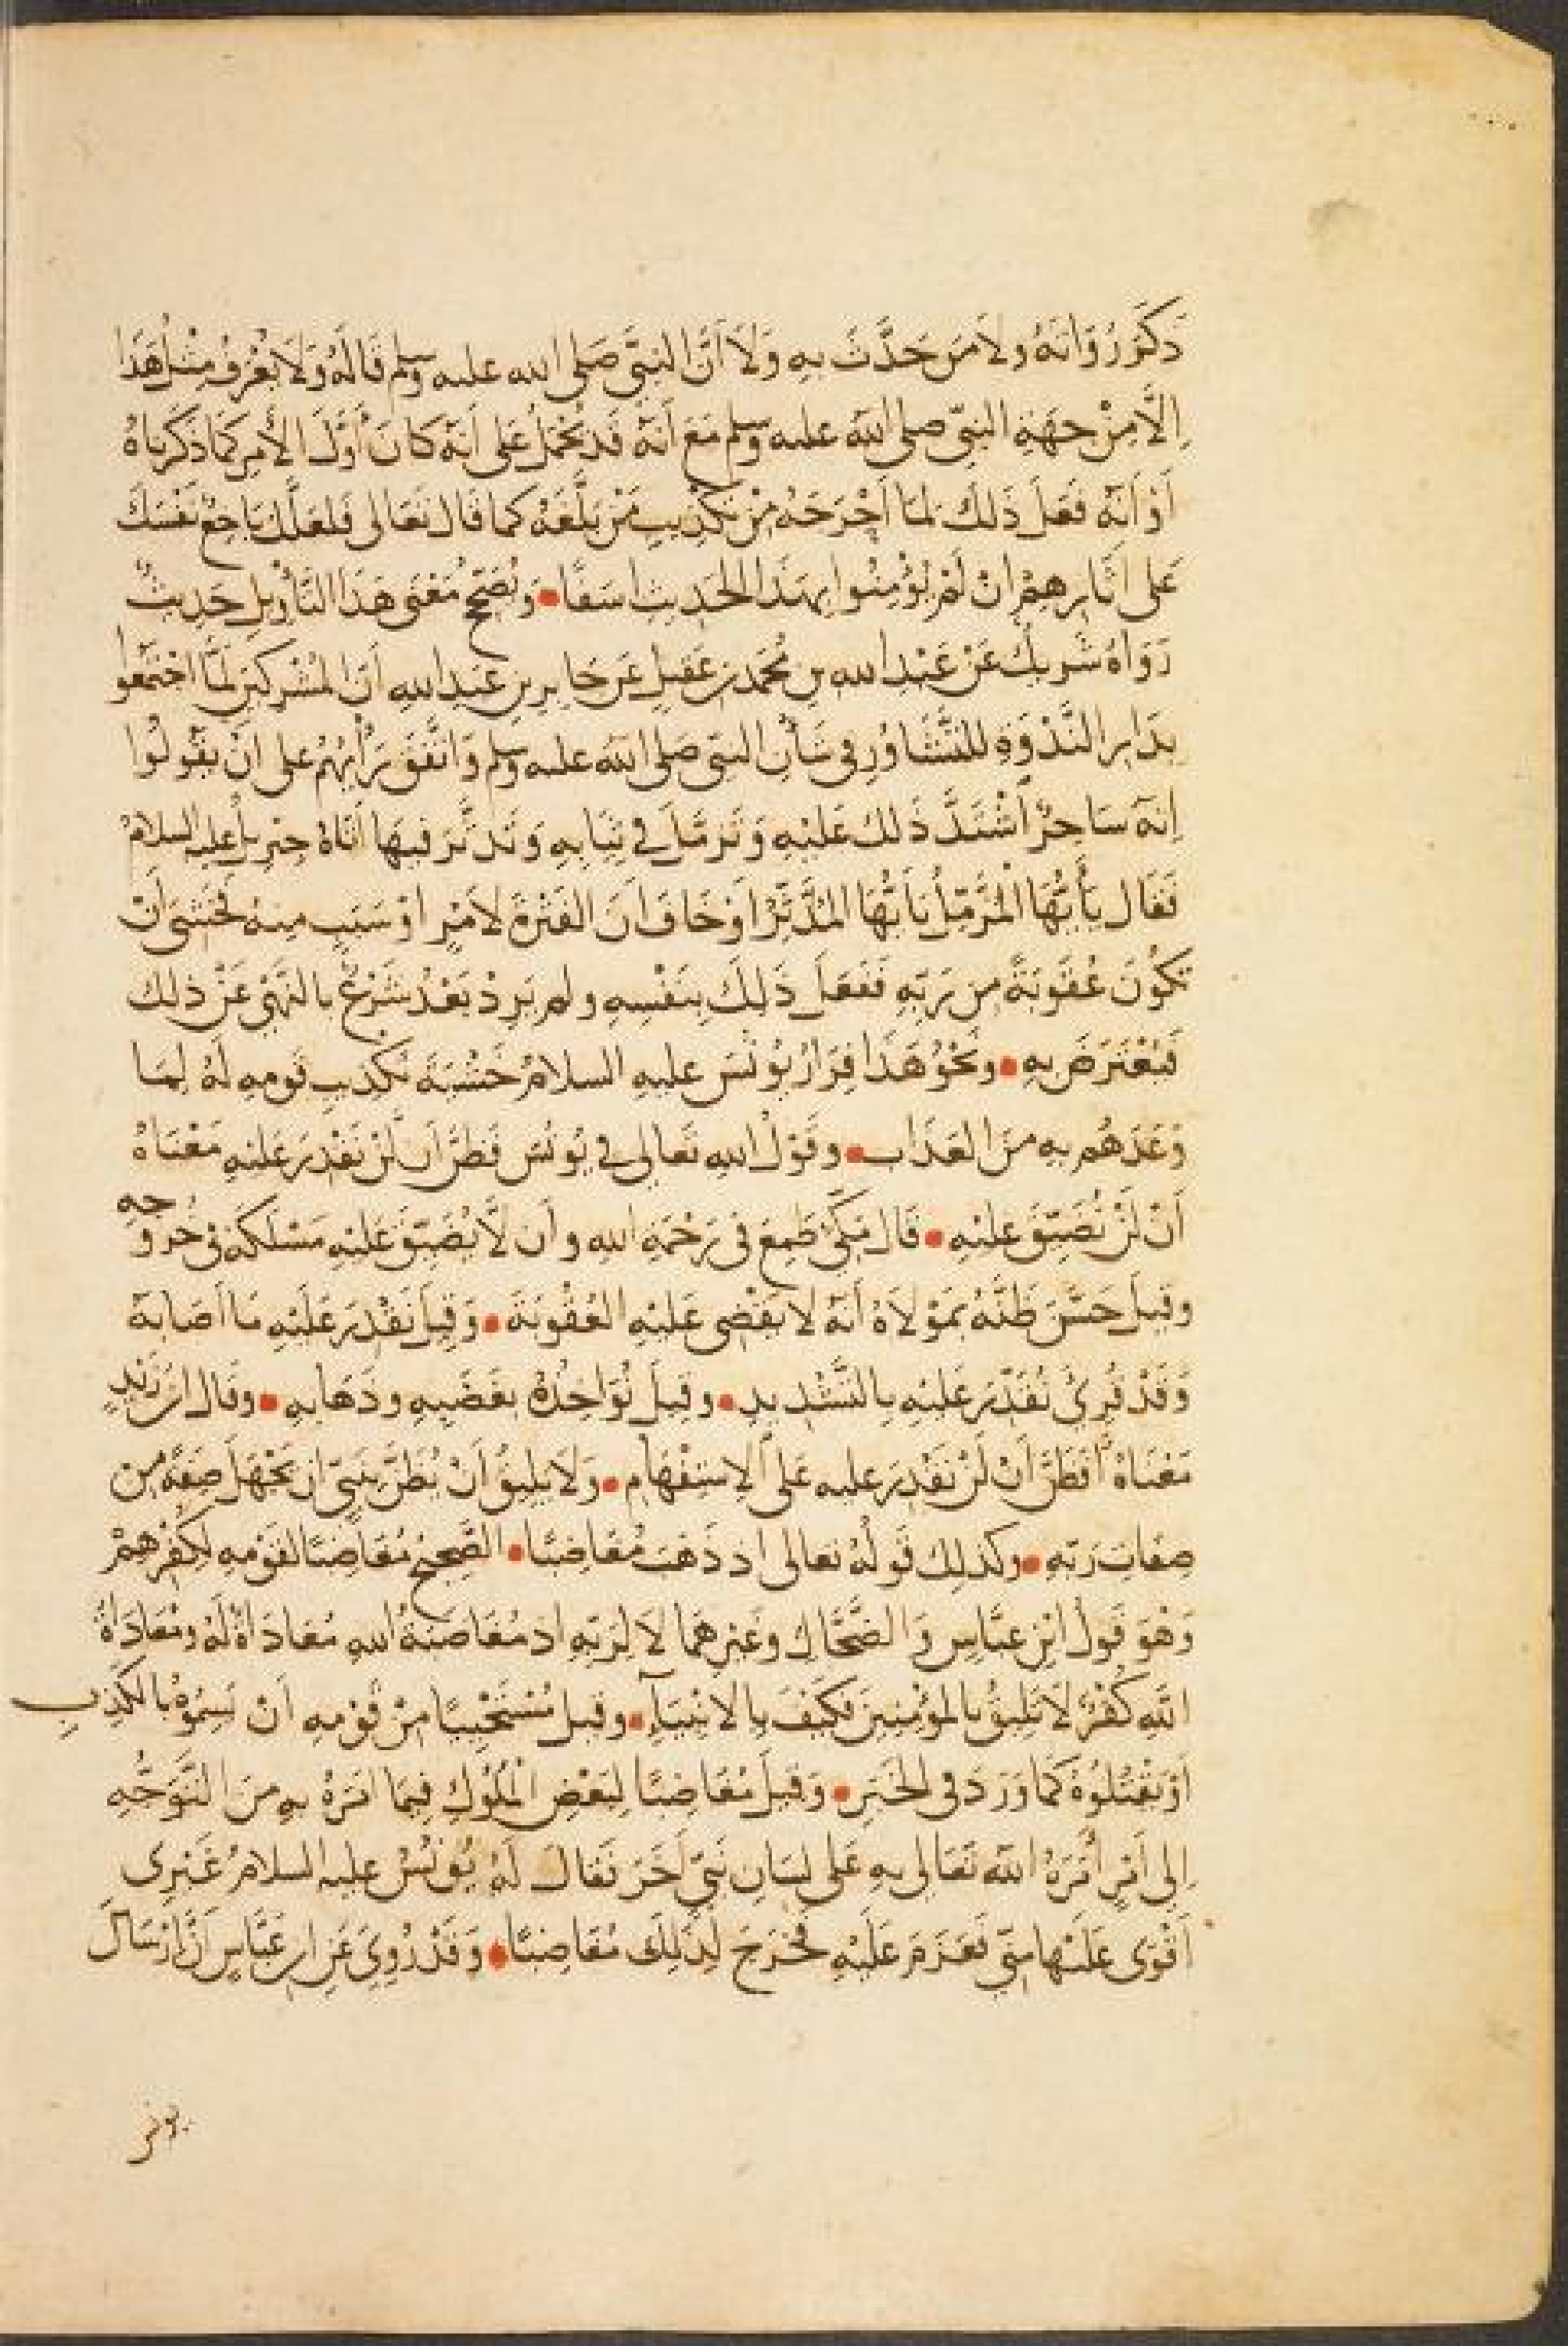 ذَكَرَ رُوَاتَهُ ولا مَن حَدَّثَ بِهِ وَلَا أَنَّ النبيَّ صَلى الله عليه وسلم قَالَهُ وَلَا يُعْرَفُ مِثْلُ هَذَا
اِلَّا مِنْ جِهَةِ النبيّ صلى الله عليه وسلم مَعَ أَنَّهُ قَد يُحْمَلُ عَلى أنهُ كَانَ أوَّلَ الأمرِ كَمَا ذَكَرناهُ
أوْ أنّهُ فَعَلَ ذَلكَ لمَا أَحْرَجَهُ مِنْ تكْذِيبِ مَنْ بَلَّغَهُ كما قال تَعَالى فلعَلَّكَ بَاخِعٌ نَفْسَكَ
عَلى اثَارِهِمْ انْ لَمْ يُؤمِنُوا بهَذَا الحَدِيثِ اسَفًا • وَيُصَحّحُ مَعْنَى هَذَا التأوِيلِ حَدِيثٌ
رَوَاهُ شَرِيكٌ عَنْ عَبْدِ الله بن مُحَمدِ بن عَقيلٍ عَن جَابِرِ بنِ عَبدِ اللهِ أنّ المشركينَ لمَّا اجْتَمَعُوا
بِدَارِ النَّدْوَةِ للتَّشَاوُرِ في شَأنِ النبيّ صَلى الله عليه وسلم وَاتَّفَقَ رَأْيُهُمْ على انْ يقُولُوا
اِنهُ سَاحِرٌ اشْتَدَّ ذَلكَ عَلَيْهِ وَتَزمَّلَ في ثِيَابِهِ وَتَدثّرَ فيهَا أتَاهُ جِبْرِيلُ عليه السلامُ
فَقَال يَأيُّهَا المُزّمّلُ يَأيُّهَا المُدَّثِّرُ أوْ خَافَ أنَ الفَتْرَةَ لأمْرٍ اوْ سَبَبٍ مِنهُ فَخَشِيَ أنْ
تكُونَ عُقُوبَةً مِن رَبّهِ فَفَعَلَ ذَلِكَ بنَفْسِهِ ولم يَرِدْ بَعْدُ شَرْعٌ بالنَّهْيِ عَنْ ذلك
فيُعْتَرَضَ بِهِ • ونَحْوُ هَذَا فِرَارُ يُونُسَ عليهِ السلامُ خَشْيَةَ تكذيبِ قَومِهِ لَهُ لِمَا
وَعَدَهُم بِهِ منَ العَذَابِ • وقَوْلُ اللهِ تَعالى في يُونُسَ فَظنَّ أن لّنْ نَقْدِرَ عَلَيْهِ مَعْنَاهُ
أنْ لَنْ نُضَيّقَ عليْهِ • قَالَ مَكّيٌ طَمِعَ في رَحْمَةِ الله وأن لّا يُضَيّقَ عَلَيْهِ مَسْلَكَهُ في خُرُوجِهِ
وقيلَ حَسَّنَ ظَنَّهُ بمَوْلَاهُ أنّهُ لا يَقْضِي عَلَيْهِ العُقُوبَةَ • وَقِيلَ نَقْدِرَ عَلَيْهِ مَا أصَابَهُ
وَقَدْ قُرِئَ نُقَدّرَ عَلَيْهِ بالتَّشْدِيدِ • وقيلَ نُؤاخِذُهُ بغَضَبِهِ وذَهَابِهِ • وقال ابن زَيْدٍ
مَعْنَاهُ أفَظَنَّ أنْ لَنْ نَقْدِرَ عليهِ عَلى الاستِفْهَامِ • وَلَا يَليقُ أنْ يُظَنَّ بنَبِيّ ان يَجْهَلَ صِفَةً مِن
صِفَاتِ رَبّهِ • وكذلِك قَولُهُ تعالى اذ ذَهَبَ مُغَاضِبًا • الصَّحِيحُ مُغَاضِبًا لقَوْمِهِ لِكُفْرِهِمْ
وَهْوَ قَولُ ابنِ عبَّاسٍ وَالضَّحَّاكِ وغَيْرِهمَا لَا لِرَبّهِ اذ مُغَاضَبَةُ اللهِ مُعَادَاةٌ لَهُ ومُعَادَاةُ
اللهِ كُفْرٌ لَا تَليقُ بالمؤمِنِينَ فكَيْفَ بِالانْبِيَآءِ • وقيلَ مُسْتَحْيِيًا مِنْ قَوْمِهِ اَنْ يَسِمُوهُ بالكَذِبِ
أوْ يَقْتُلُوهُ كَمَا وَرَدَ في الخَبَرِ • وَقيلَ مُغَاضِبًا لبَعْضِ المُلُوكِ فيمَا امَرَهُ بهِ مِنَ التَّوَجُّهِ
اِلى أمْرٍ أمَرَهُ اللهُ تَعَالى بِهِ عَلى لِسَانِ نَبيّ آخَرَ فَقَالَ لَهُ يُونُسُ عليه السلامُ غَيْرِي
أقْوَى عَلَيْها مِنّي فعَزَمَ عَلَيْهِ فخَرَجَ لِذَلِكَ مُغَاضِبًا • وَقَدْ رُوِيَ عَن ابن عَبَّاسٍ أنَّ إرْسَالَ
يونس